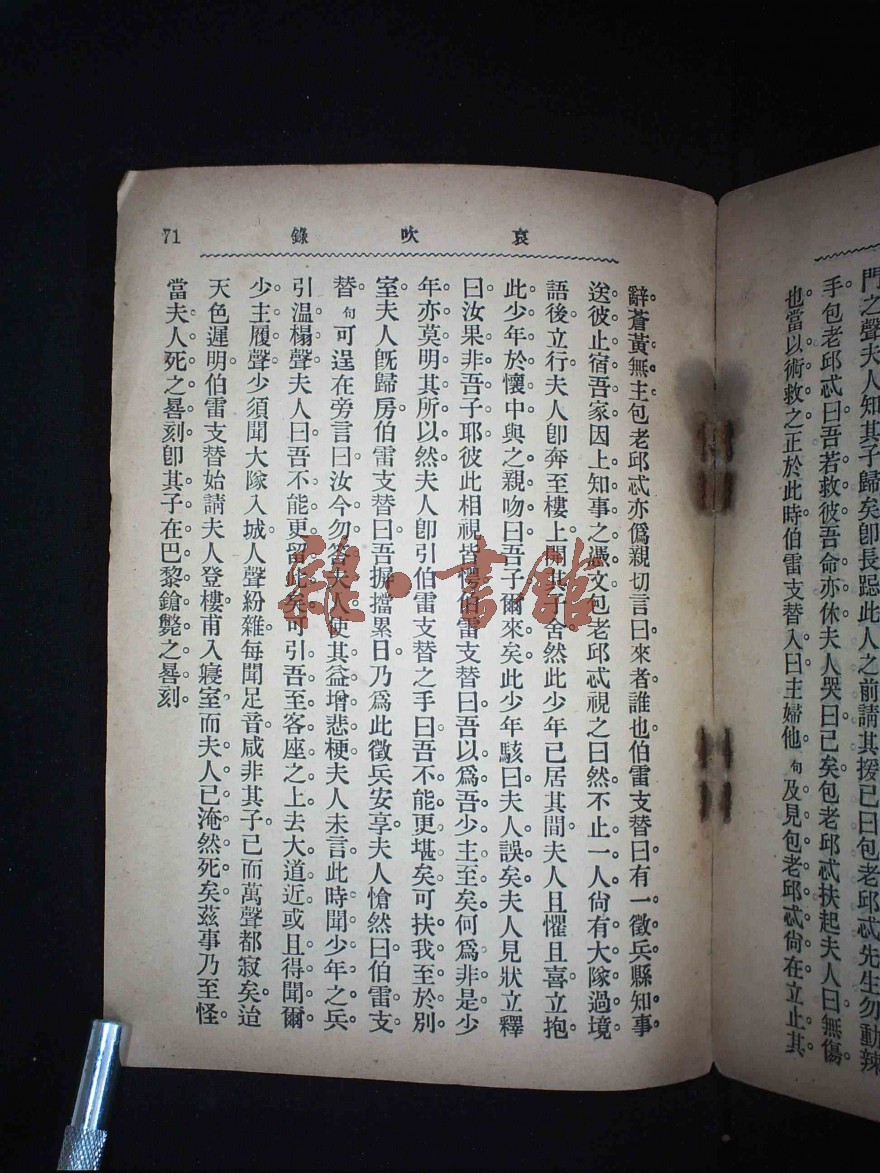 門之聲夫人知其子歸矣卽長跽此人之前請其援已曰包老邱忒先生勿動辣
手包老邱忒曰吾若救彼吾命亦休夫人哭曰已矣包老邱忒扶起夫人曰無傷
也當以術救之正於此時伯雷支替入曰主婦他句及見包老邱忒尙在立止其
哀吹錄
71
辭蒼黃無主包老邱忒亦僞爲親切言曰來者誰也伯雷支替曰有一徵兵縣知事
送彼止宿吾家因上知事之憑文包老邱忒視之曰然不止一人尙有大隊過境
語後立行夫人卽奔至樓上開其子舍然此少年已居其間夫人且懼且喜立抱
此少年於懷中與之親吻曰吾子爾來矣此少年駭曰夫人誤矣夫人見狀立釋
曰汝果非吾子耶彼此相視皆愕伯雷支替曰吾以爲吾少主至矣何爲非是少
年亦莫明其所以然夫人卽引伯雷支替之手曰吾不能更堪矣可扶我至於別
室夫人旣歸房伯雷支替曰吾摒擋累日乃爲此徵兵安享夫人愴然曰伯雷支
替句可逞在旁言曰汝今勿答夫人使其益增悲梗夫人未言此時聞少年之兵
引溫榻聲夫人曰吾不能更留此矣可引吾至客座之上去大道近或且得聞爾
少主履聲少須聞大隊入城人聲紛雜每聞足音咸非其子已而萬聲都寂矣迨
天色遲明伯雷支替始請夫人登樓甫入寢室而夫人已淹然死矣茲事乃至怪
當夫人死之晷刻卽其子在巴黎鎗斃之晷刻
雜·書館